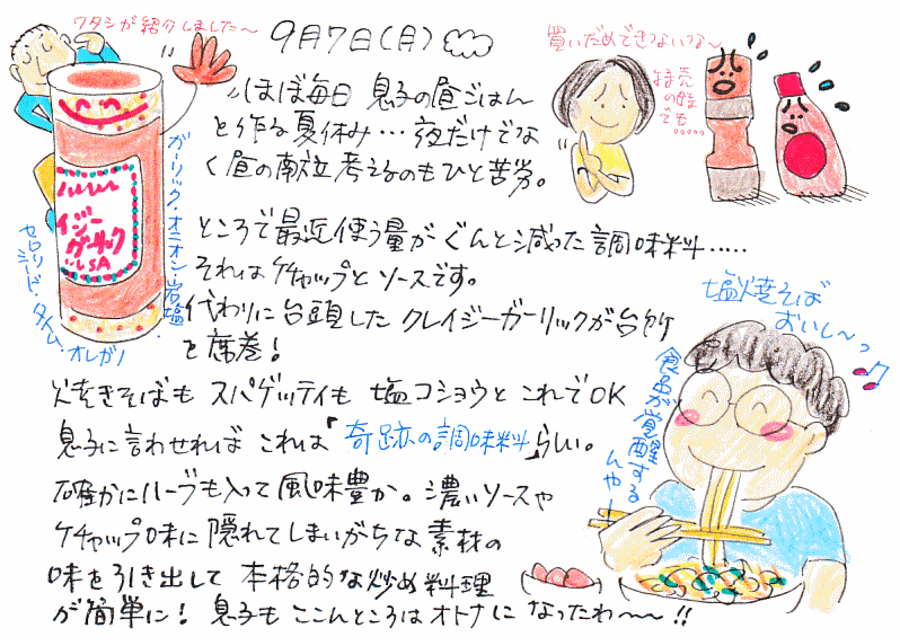 ワタシが紹介しました〜
9月7日(月)
買いだめできつないつな〜
特売
の姪
でも……
ほぼ毎日 息子の昼ごはん
を作る夏休み… 夜だけでな
く昼の献立考えるのもひと苦労。
ところで最近使う量がぐんと減った調味料.....
それはケチャップとソースです。
代わりに台頭したクレイジーガーリックが台所
を席巻!
焼きそばも スパゲッティも 塩コショウとこれでOK
息子に言わせれば これは「奇跡の調味料」らしい。
確かにハーブも入って風味豊か。濃いソースや
ケチャップ味に隠れてしまいがちな素材の
味を引き出して 本格的な炒め料理
が簡単に! 息子も ここんところはオトナに なったわ〜〜!!
イジー
ガーリック
USA
ガーリック・オニオン・岩塩・
セロリシード・タイム・オレガノ
塩焼そば
おいし〜っ
食品が覚醒する
んや〜